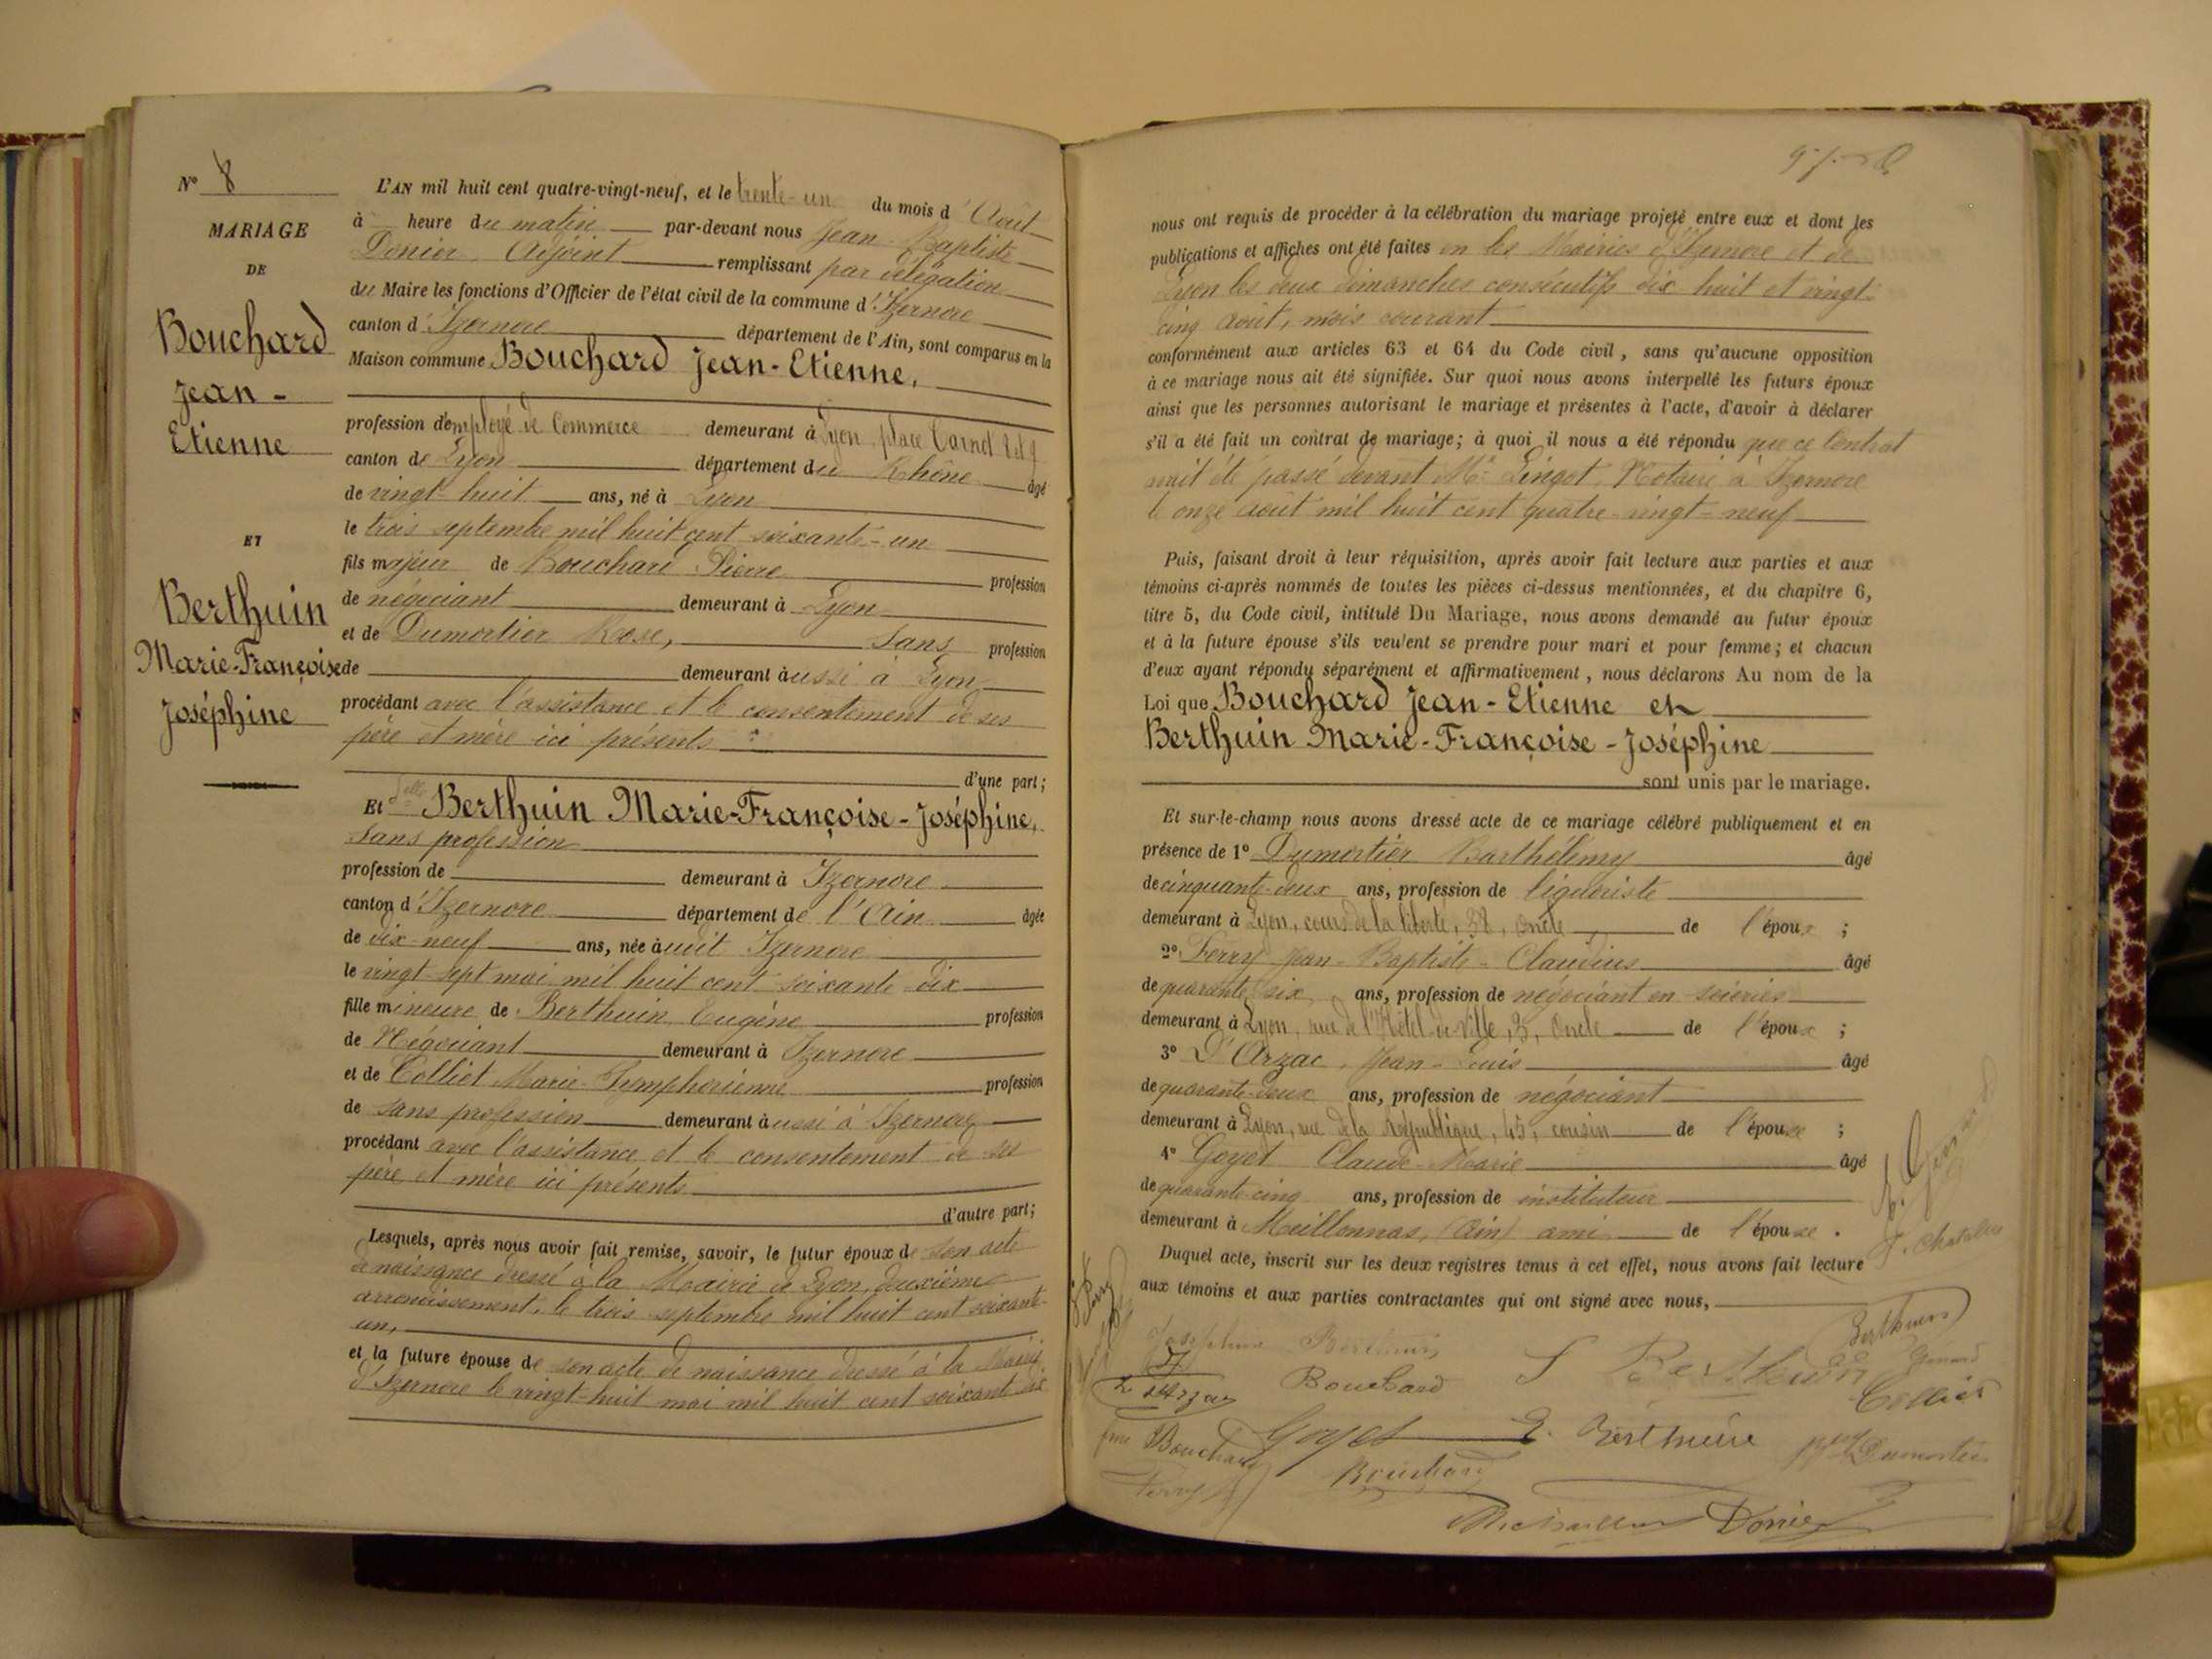 N° 8
MARIAGE
DE
Bouchard
Jean -
Etienne
ET
Berthuin
Marie-Françoise
Joséphine
L'AN mil huit cent quatre-vingt-neuf, et le trente-un du mois d'Août
à heure du matin par-devant nous Jean-Baptiste
Donier, Adjoint remplissant par délégation
du Maire les fonctions d'Officier de l'état civil de la commune d'Izernore
canton d'Izernore département de l'Ain, sont comparus en la
Maison commune Bouchard Jean-Etienne,
profession d'employé de Commerce demeurant à Lyon, place Carnot
canton de Lyon département du Rhône âgé
de vingt-huit ans, né à Lyon
le trois septembre mil huit cent soixante-un
fils majeur de Bouchard Pierre profession
de négociant demeurant à Lyon
et de Dumortier Rose, sans profession
de demeurant aussi à Lyon
procédant avec l'assistance et le consentement de ses
père et mère ici présents
d'une part;
Et Delle Berthuin Marie-Françoise-Joséphine,
sans profession
profession de demeurant à Izernore
canton d'Izernore département de l'Ain âgée
de dix-neuf ans, née audit Izernore
le vingt-sept mai mil huit cent soixante-dix
fille mineure de Berthuin Eugène profession
de Négociant demeurant à Izernore
et de Colliet Marie-Symphorienne profession
de sans profession demeurant aussi à Izernore
procédant avec l'assistance et le consentement de ses
père et mère ici présents
d'autre part;
Lesquels, après nous avoir fait remise, savoir, le futur époux de son acte
de naissance dressé à la Mairie de Lyon, deuxième
arrondissement, le trois septembre mil huit cent soixante-
un,
et la future épouse de son acte de naissance dressé à la Mairie
d'Izernore le vingt-huit mai mil huit cent soixante-dix
nous ont requis de procéder à la célébration du mariage projeté entre eux et dont les
publications et affiches ont été faites en les Mairies d'Izernore et de
Lyon les deux dimanches consécutifs dix-huit et vingt-
cinq août, mois courant
conformément aux articles 63 et 64 du Code civil, sans qu'aucune opposition
à ce mariage nous ait été signifiée. Sur quoi nous avons interpellé les futurs époux
ainsi que les personnes autorisant le mariage et présentes à l'acte, d'avoir à déclarer
s'il a été fait un contrat de mariage; à quoi il nous a été répondu que ce Contrat
avait été passé devant Me Lingot, Notaire à Izernore
le onze août mil huit cent quatre-vingt-neuf
Puis, faisant droit à leur réquisition, après avoir fait lecture aux parties et aux
témoins ci-après nommés de toutes les pièces ci-dessus mentionnées, et du chapitre 6,
titre 5, du Code civil, intitulé Du Mariage, nous avons demandé au futur époux
et à la future épouse s'ils veulent se prendre pour mari et pour femme; et chacun
d'eux ayant répondu séparément et affirmativement, nous déclarons Au nom de la
Loi que Bouchard Jean-Etienne et
Berthuin Marie-Françoise-Joséphine
sont unis par le mariage.
Et sur-le-champ nous avons dressé acte de ce mariage célébré publiquement et en
présence de 1° Dumortier Barthélemy âgé
de cinquante-deux ans, profession de liquoriste
demeurant à Lyon, cours de la liberté, 38, oncle de l'époux ;
2° Ferry Jean-Baptiste-Claudius âgé
de quarante-six ans, profession de négociant en soieries
demeurant à Lyon, rue de l'Hôtel-de-Ville, 3, oncle de l'époux ;
3° D'Arzac, Jean-Louis âgé
de quarante-deux ans, profession de négociant
demeurant à Lyon, rue de la République, 45, cousin de l'épouse ;
4° Goyet Claude-Marie âgé
de quarante-cinq ans, profession de instituteur
demeurant à Meillonnas, (Ain) ami de l'épouse .
Duquel acte, inscrit sur les deux registres tenus à cet effet, nous avons fait lecture
aux témoins et aux parties contractantes qui ont signé avec nous,
Joséphine Berthuin
Berthuin
Bouchard
Colliet
Bouchard
Goyet
E. Berthuin
Dumortier
Ferry
Bouchard
Donier